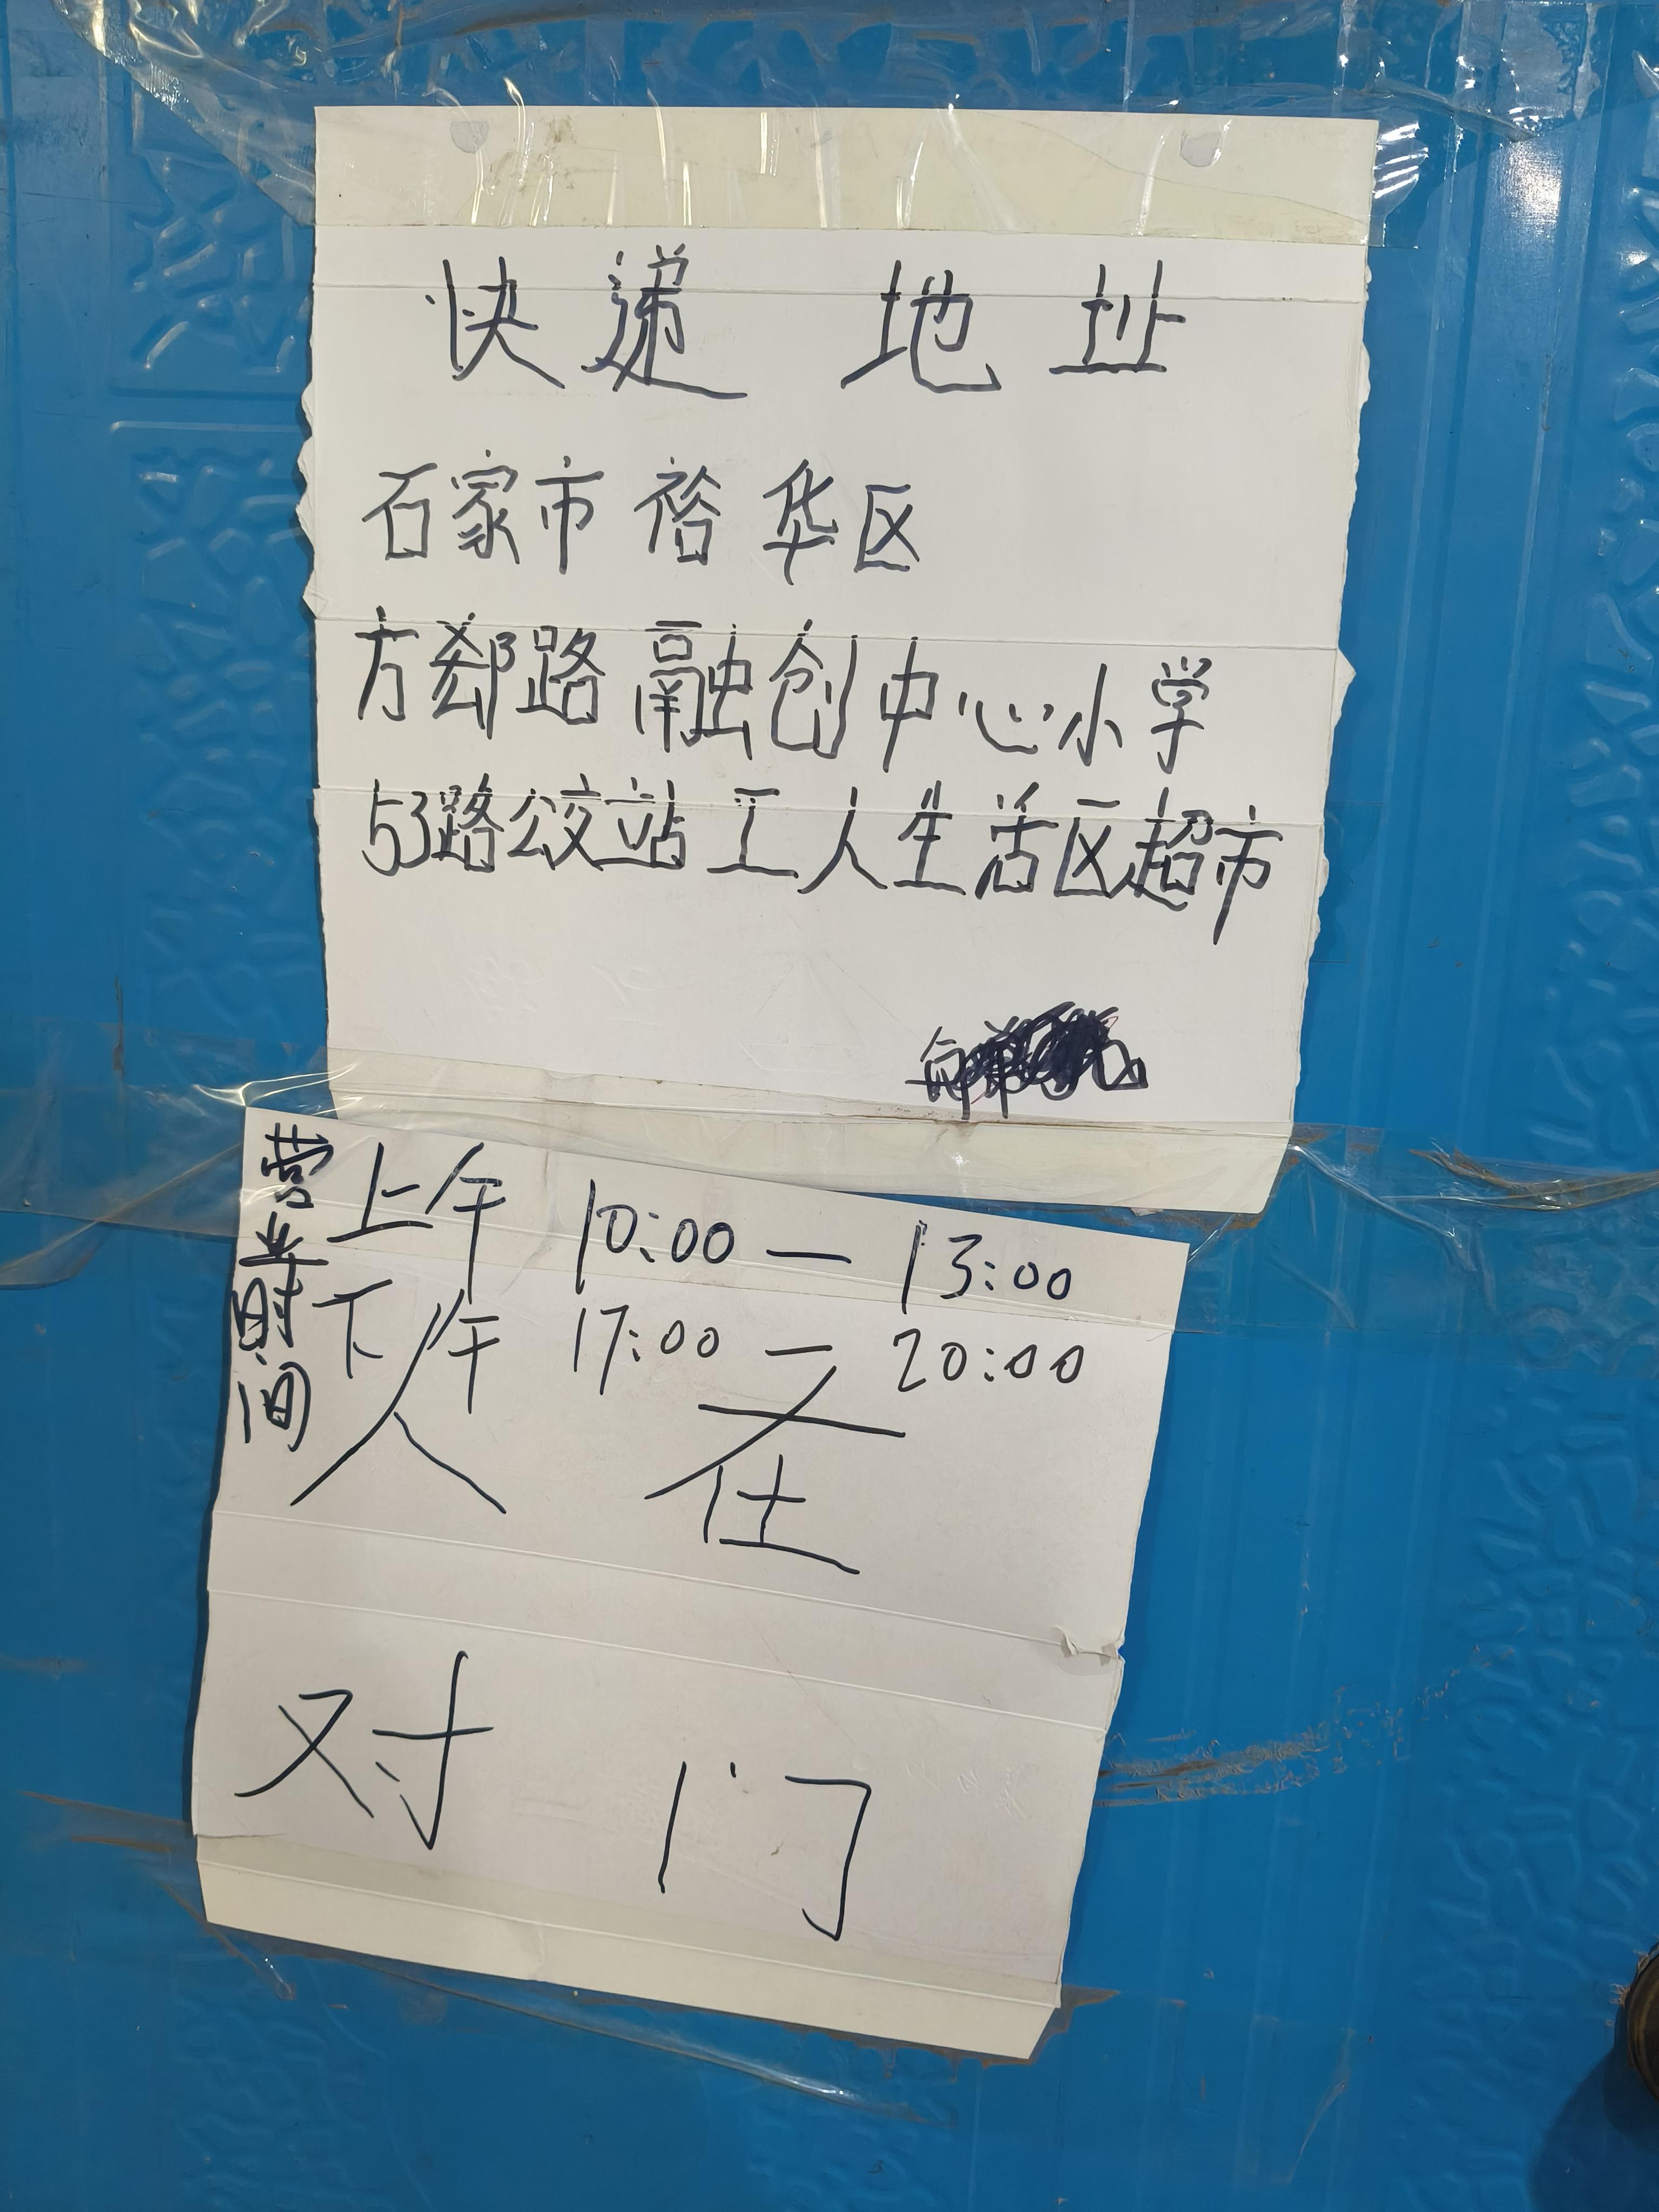 快递 地址
石家市裕华区
方郄路融创中心小学
53路公交站工人生活区超市
营业时间
上午 10:00 — 13:00
下午 17:00 — 20:00
人 在
对 门